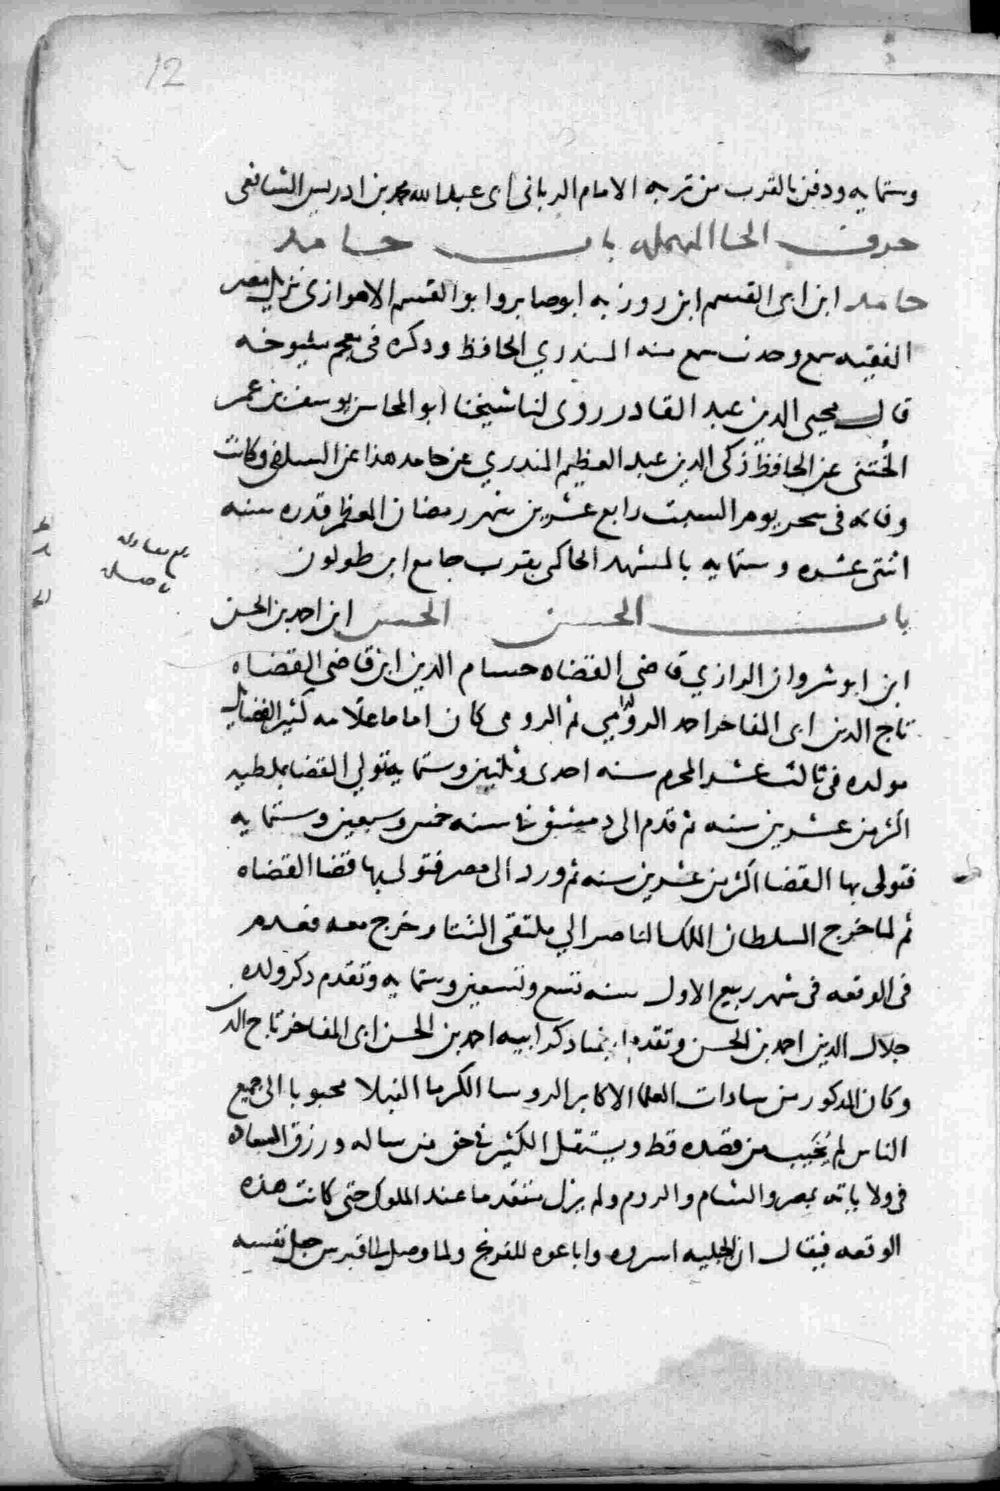 12
وستمايه ودفن بالقرب من تربه الامام الربانى ابى عبدالله محمد بن ادريس الشافعى
حرف الحا المهمله باب حامد
حامد ابن ابى القسم ابن روزبه ابو صابر وابو القسم الاهوازى نزيل مصر
الفقيه سمع وحدث سمع منه المنذري الحافظ وذكره فى معجم شيوخه
قال محيى الدين عبد القادر روى لنا شيخنا ابو المحاسن يوسف بن عمر
الخُتنى عن الحافظ زكى الدين عبد العظيم المنذري عن حامد هذا عن السلفى وكانت
وفاته فى سحر يوم السبت رابع عشرين شهر رمضان المعظم قدره سنه
اثنتى عشره وستمايه بالمشهد الحاكى بقرب جامع ابن طولون
باب الحسن الحسن ابن احمد بن الحسن
ابن ابو شروان الرازي قاضى القضاه حسام الدين ابن قاضى القضاه
تاج الدين ابى المفاخر احمد الروامي ثم الرومى كان اماما علامه كثير الفضايل
مولده فى ثالث عشر المحرم سنه احدى وثلثين وستمايه وتولي القضا بملطيه
اكثر من عشرين سنه ثم قدم الى دمشق فى سنه خمس وسبعين وستمايه
فتولى بها القضا اكثر من عشرين سنه ثم ورد الى مصر فتولى بها قضا القضاه
ثم لما خرج السلطان الملك الناصر الي ملتقى التتار خرج معه فعدم
فى الوقعه فى شهر ربيع الاول سنه تسع وتسعين وستمايه وتقدم ذكر ولده
جلال الدين احمد بن الحسن وتقدم ايضا ذكر ابيه احمد بن الحسن ابى المفاخر تاج الدين
وكان المذكور من سادات العلما الاكابر الروسا الكرما النبلا محبوبا الى جميع
الناس لم يُخَيب من قصده قط ويستقل الكثير فى حق من ساله ورزق السعاده
فى ولاياته بمصر والشام والروم ولم يزل متقدما عند الملوك حتى كانت هذه
الوقعه فيقال ان الجليه اسروه واباعوه للفرنج ولما وصل الى قبرس جعل نفسه